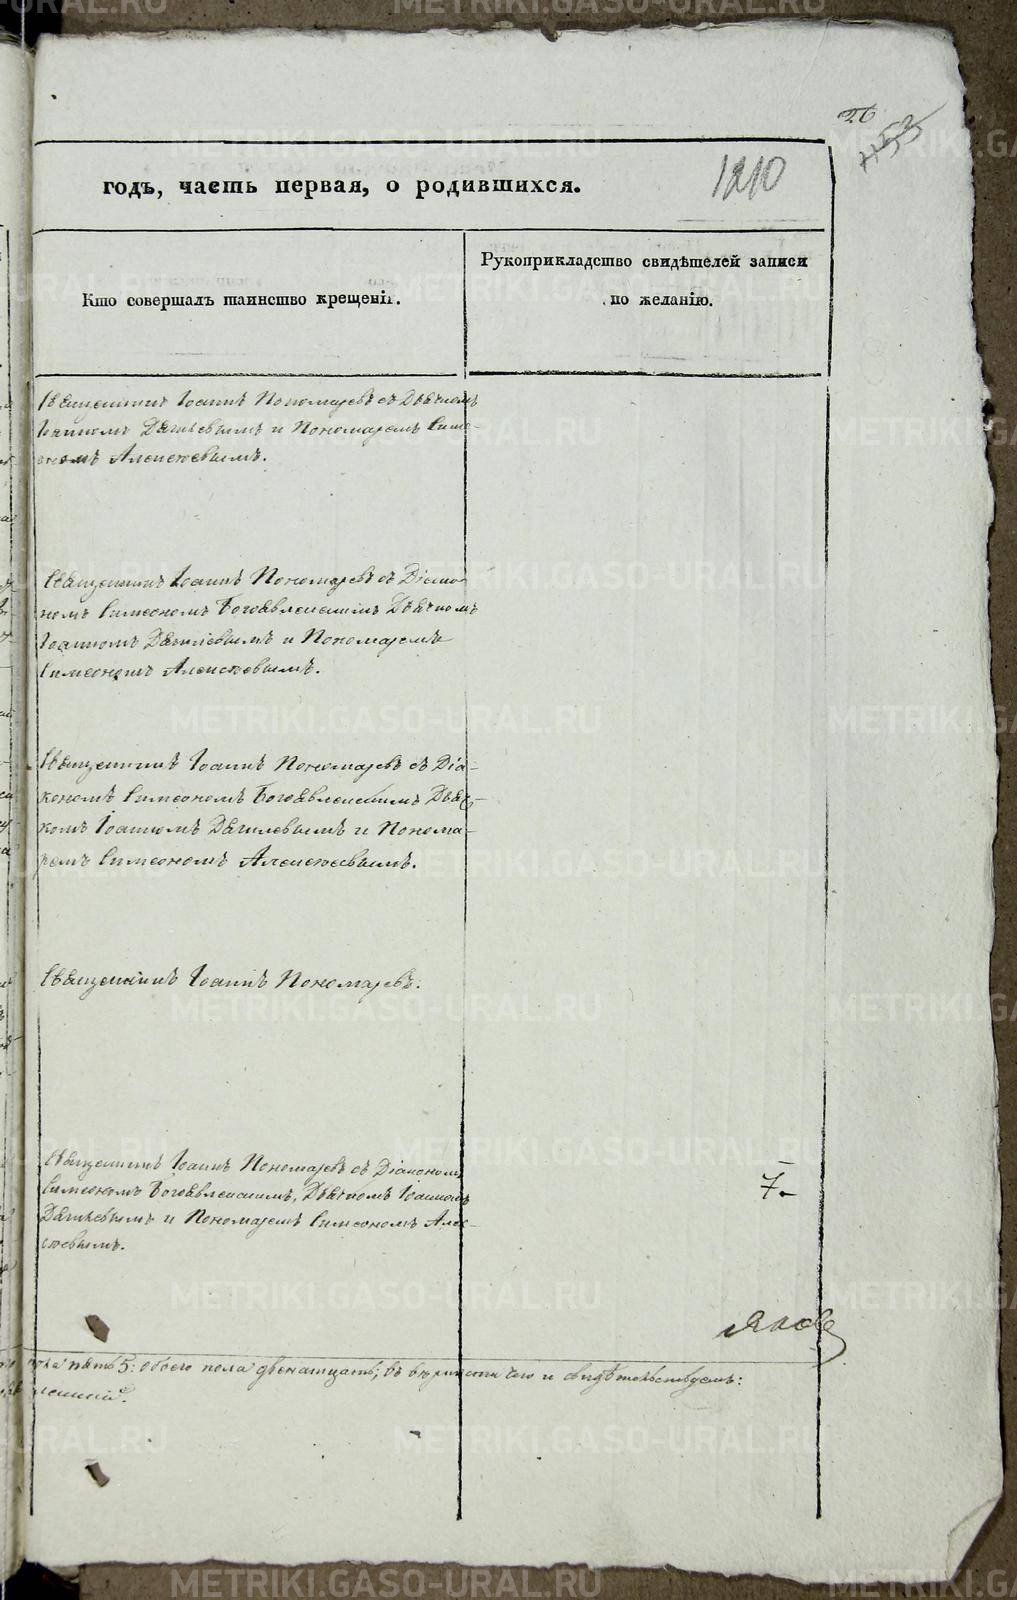 26
1153
годъ, часть первая, о родившихся.
1210
Кто совершалъ таинство крещенія.
Рукоприкладство свидѣтелей записи
по желанію.
Священникъ Іоаннъ Пономаревъ съ Дьячкомъ
Іоанномъ Дягилевымъ и Пономаремъ Симе-
ономъ Алексѣевымъ.
Священникъ Іоаннъ Пономаревъ съ Діако-
номъ Симеономъ Богоявленскимъ Дьячкомъ
Іоанномъ Дягилевымъ и Пономаремъ
Симеономъ Алексѣевымъ.
Священникъ Іоаннъ Пономаревъ съ Діа-
кономъ Симеономъ Богоявленскимъ Дьяч-
комъ Іоанномъ Дягилевымъ и Понома-
ремъ Симеономъ Алексѣевымъ.
Священникъ Іоаннъ Пономаревъ.
Священникъ Іоаннъ Пономаревъ съ Діакономъ
Симеономъ Богоявленскимъ, Дьячкомъ Іоанномъ
Дягилевымъ и Пономаремъ Симеономъ Алек-
сѣевымъ.
7.
пять 5: обоего пола двенатцать; въ вѣрности чего и свидѣтельствуемъ:
METRIKI.GASO-URAL.RU